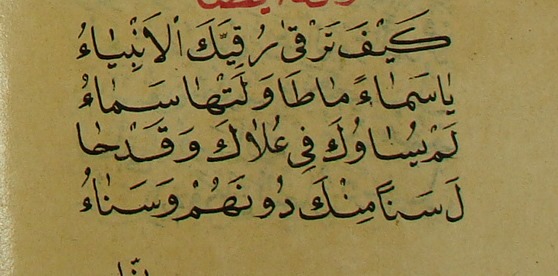 كَيْفَ تَرْقىٰ رُقِيَّكَ ٱلاَنْبِيٰاءُ
يٰاسَمٰاءً مٰاطَاوَلَتْهٰا سَمٰاءُ
لَمْ يُسٰاوُكَ فِى عُلٰاكَ وَقَدْحٰا
لَ سَنًا مِنْكَ دُونَهُمْ وَسَنٰاءُ